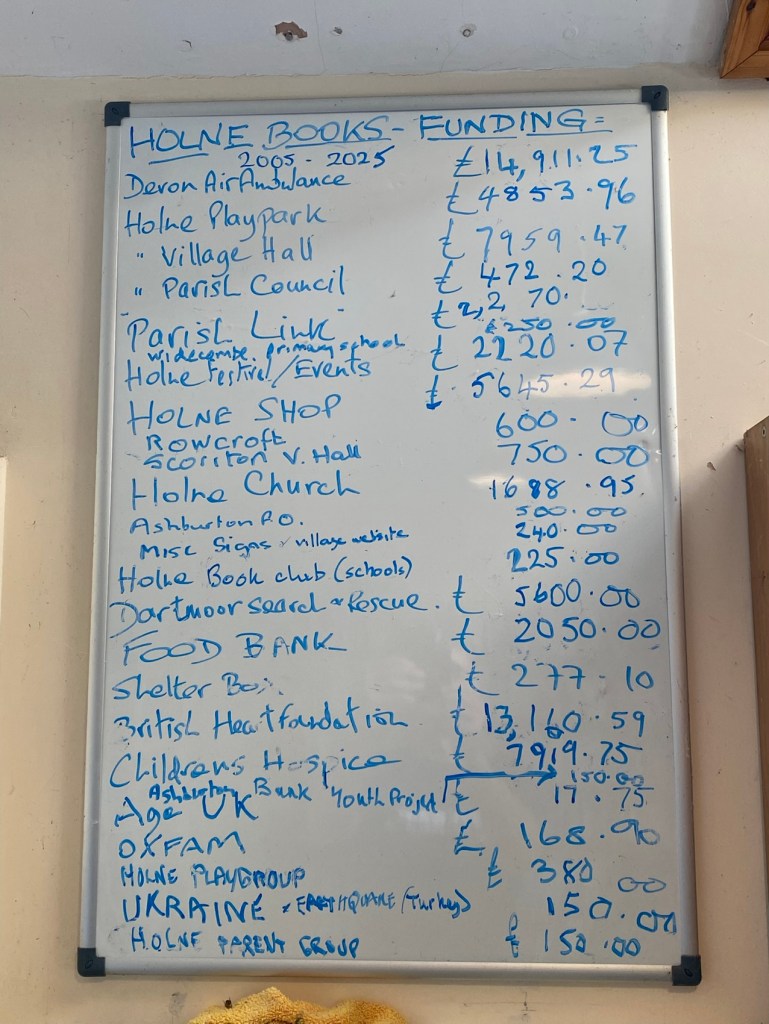 HOLNE BOOKS - FUNDING =
2005 - 2025
Devon Air Ambulance £14,911.25
Holne Playpark £4853.96
" Village Hall £7959.47
" Parish Council £472.20
"Parish Link" £2,2 70.
Widecombe. primary school £250.00
Holne Festival/Events £2220.07
HOLNE SHOP £. 5645.29
ROWCROFT 600.00
SCORITON V. Hall 750.00
Holne Church 1688.95
Ashburton P.O. 500.00
Misc Signs & village website 240.00
Holne Book club (schools) 225.00
Dartmoor search & Rescue. £ 5600.00
FOOD BANK £ 2050.00
Shelter Box. £ 277.10
British Heart foundation £13,160.59
Childrens Hospice £ 7919.75
Ashburton Bank Youth Project 150.00
Age UK £ 17.75
OXFAM £ 168.90
HOLNE PLAYGROUP £ 380 00
UKRAINE & EARTHQUAKE (Turkey) 150.00
HOLNE PARENT GROUP £ 150.00